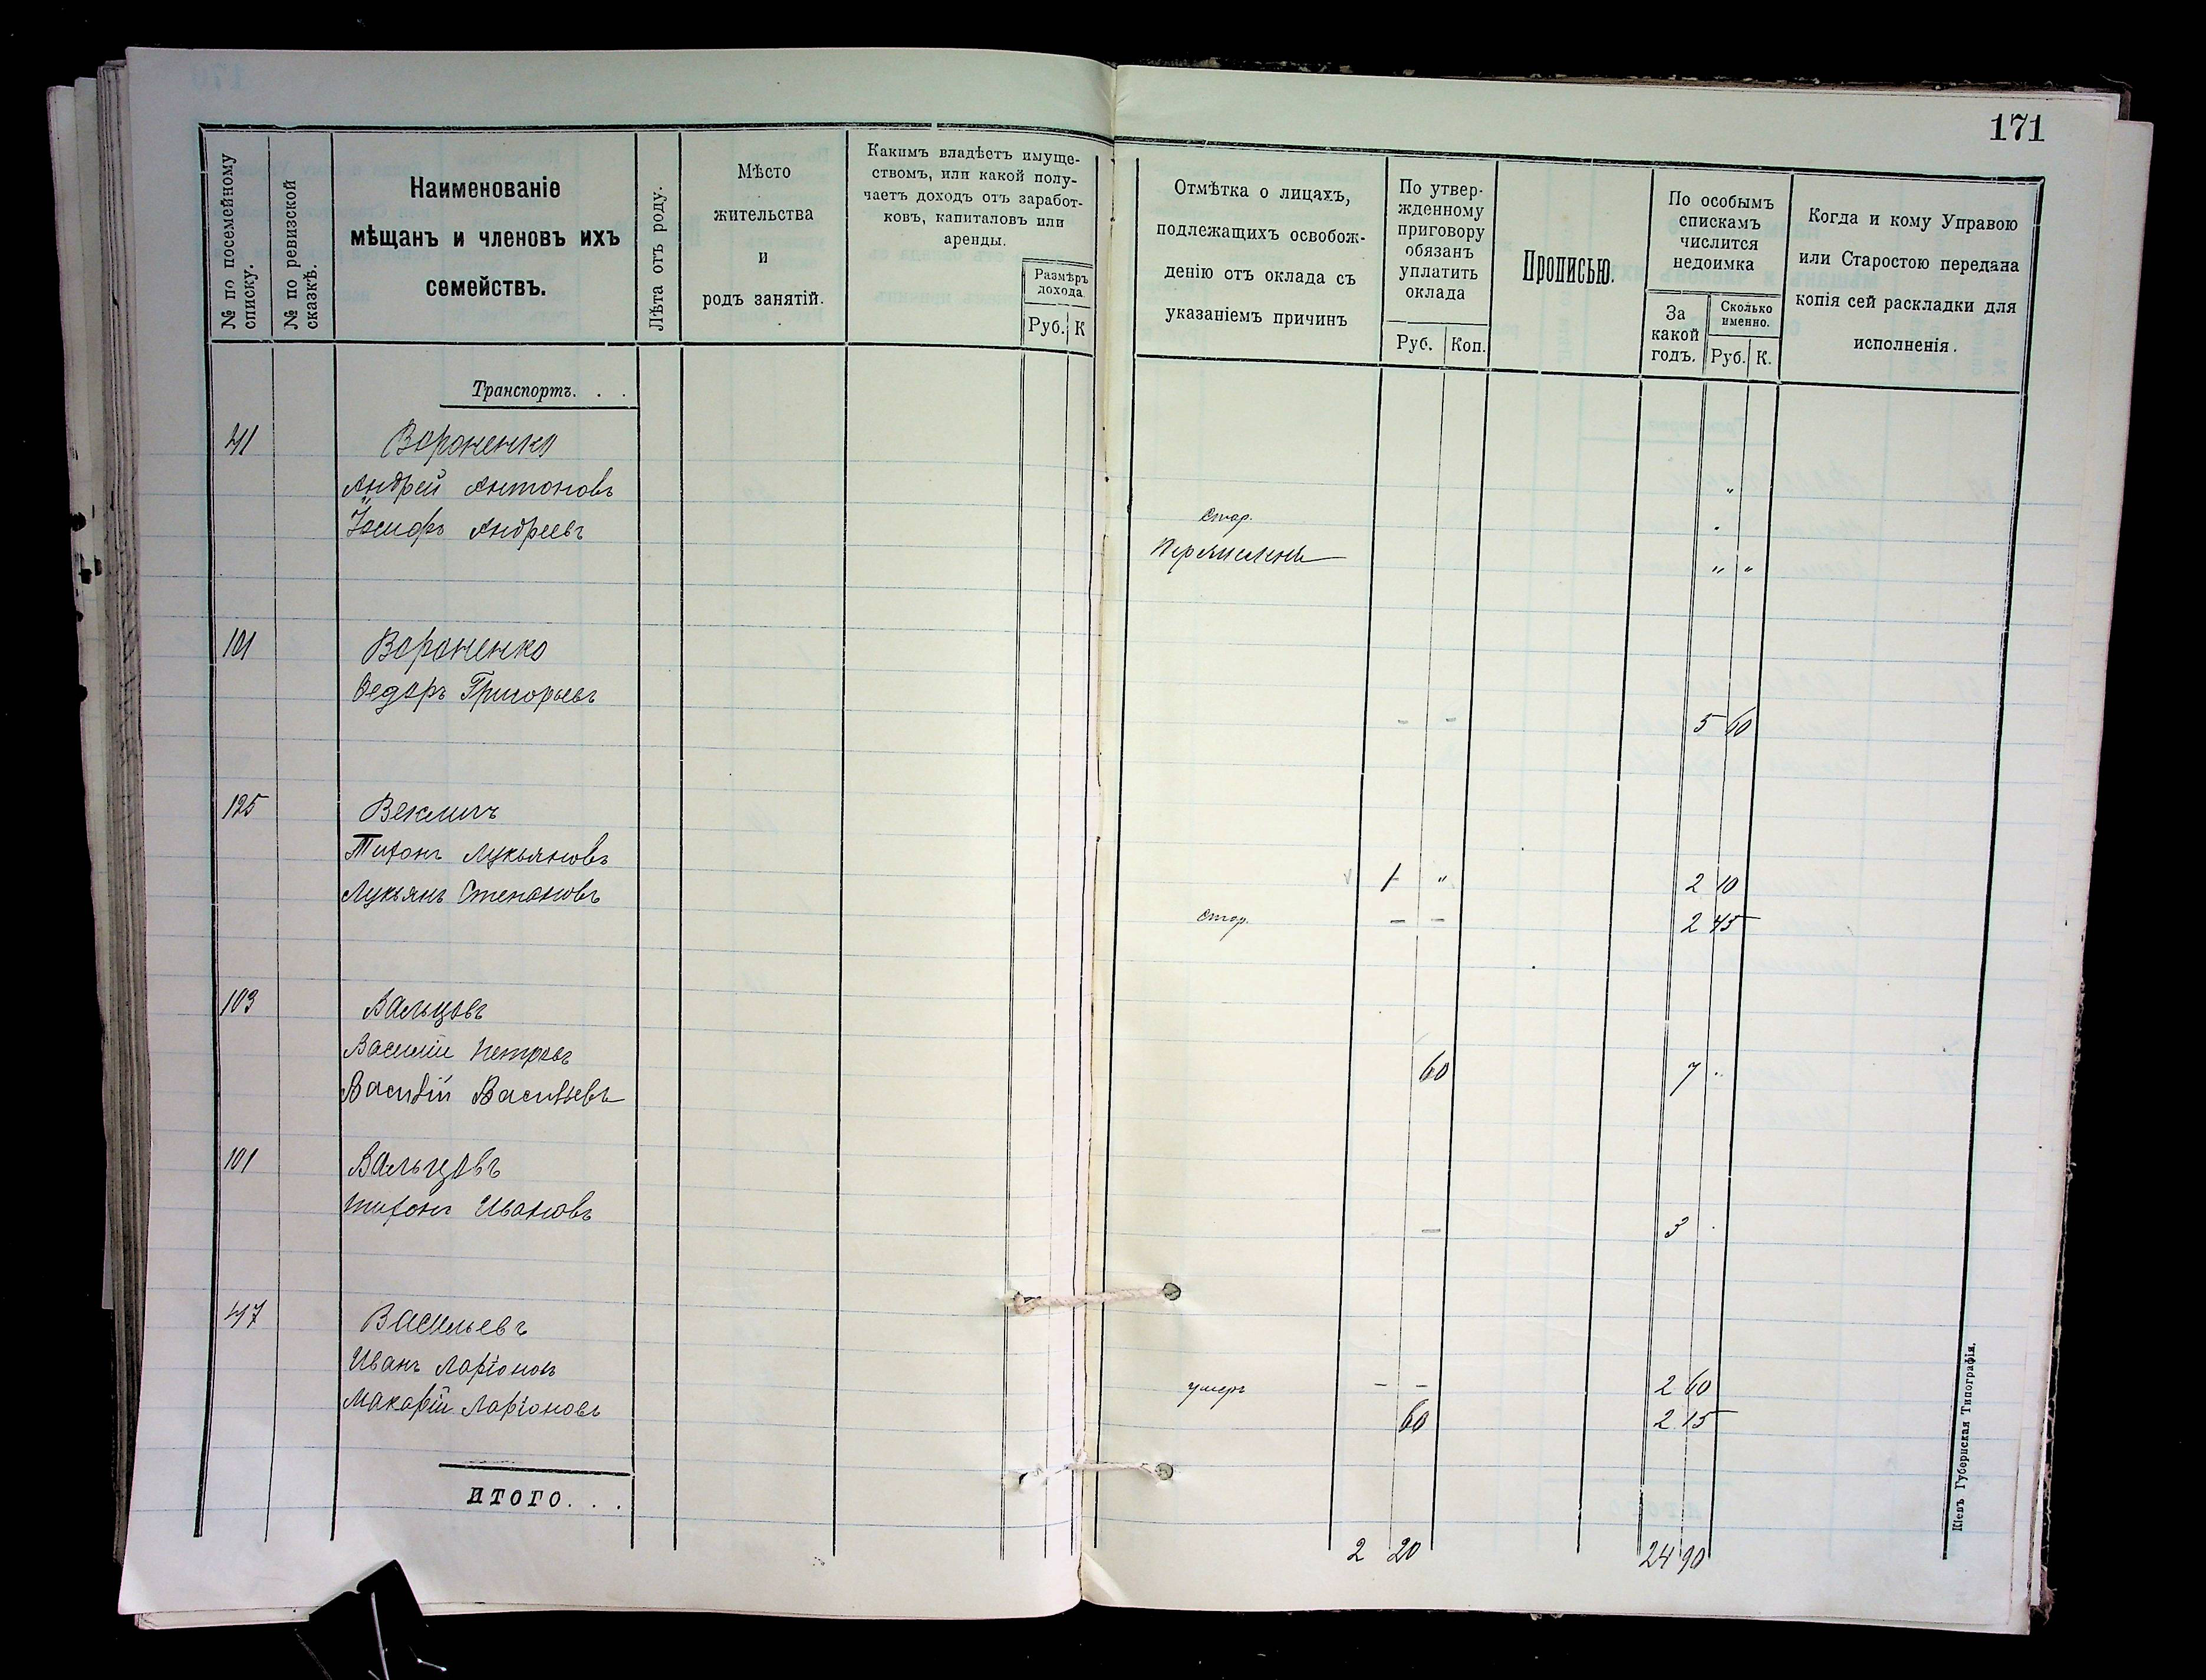 171
№ по посемейному списку.
№ по ревизской сказкѣ.
Наименованіе
мѣщанъ и членовъ ихъ
семействъ.
Лѣта отъ роду.
Мѣсто
жительства
и
родъ занятій.
Какимъ владѣетъ имуще-
ствомъ, или какой полу-
чаетъ доходъ отъ заработ-
ковъ, капиталовъ или
аренды.
Размѣръ
дохода.
Руб. К
Отмѣтка о лицахъ,
подлежащихъ освобож-
денію отъ оклада съ
указаніемъ причинъ
По утвер-
жденному
приговору
обязанъ
уплатить
оклада
Руб. Коп.
Прописью.
По особымъ
спискамъ
числится
недоимка
За
какой
годъ.
Сколько
именно.
Руб. К.
Когда и кому Управою
или Старостою передана
копія сей раскладки для
исполненія.
Транспортъ. . .
41 Вороненко
Андрей Антоновъ Стар. "
Іосифъ Андреевъ Перечисленъ " "
101 Вороненко
Федоръ Григорьевъ - - 5 60
125 Векличъ
Тихонъ Лукьяновъ 1 " 2 10
Лукьянъ Степановъ Стар. - - 2 45
103 Вальцовъ
Василій Петровъ 60 7 "
Василій Васильевъ
101 Вальцовъ
Тихонъ Ивановъ - 3 .
47 Васильевъ
Иванъ Ларіоновъ умеръ - - 2 60
Макарій Ларіоновъ 60 2 15
ИТОГО. . .
2 20 24 90
Кіевъ Губернская Типографія.